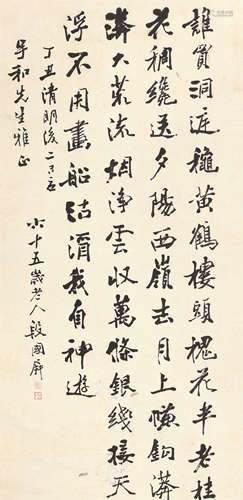 誰買洞庭龝黃鶴樓頭槐花半老桂
花稠纔送夕陽西嶺去月上簾鈎漭
漭大荒流烟淨雲収萬條銀綫接天
浮不用畫船沽酒我自神遊
丁丑清明後二日
和先生雅正
六十五歲老人段國屏